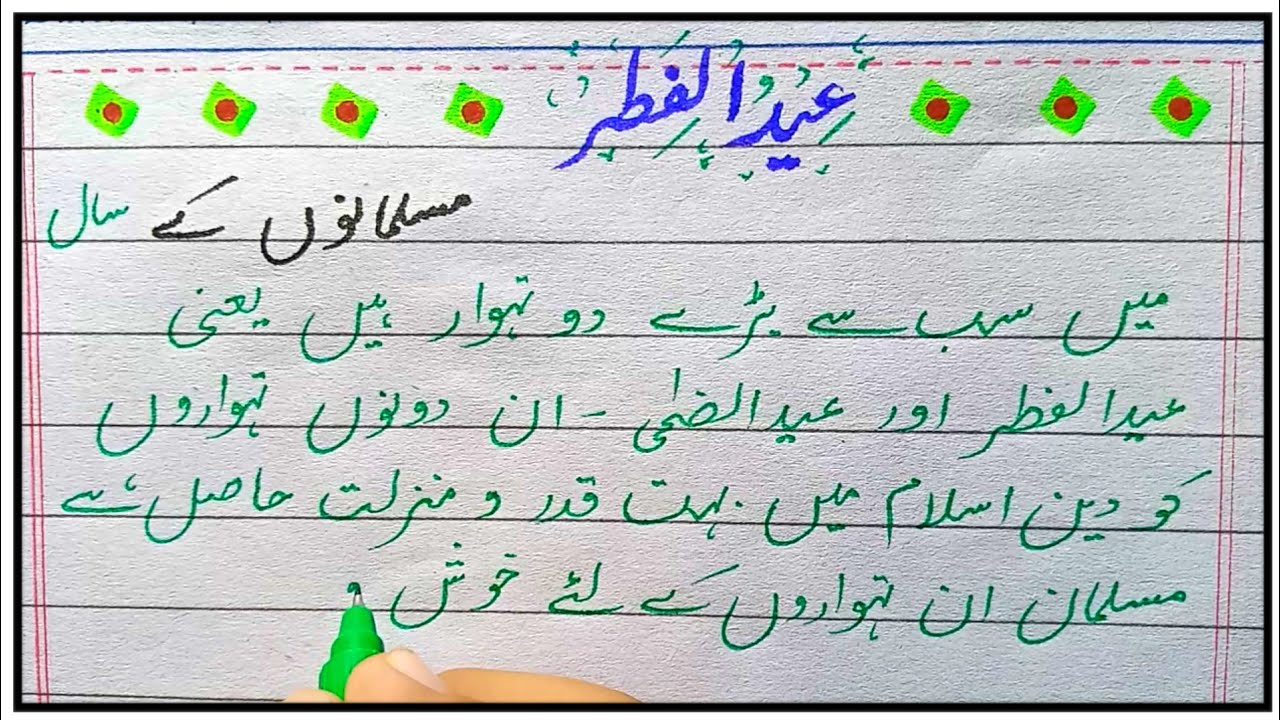 عیدالفطر
مسلمانوں کے سال
میں سب سے بڑے دو تہوار ہیں یعنی
عیدالفطر اور عیدالضحٰی - ان دونوں تہواروں
کو دین اسلام میں بہت قدر و منزلت حاصل ہے
مسلمان ان تہواروں کے لئے خوش و